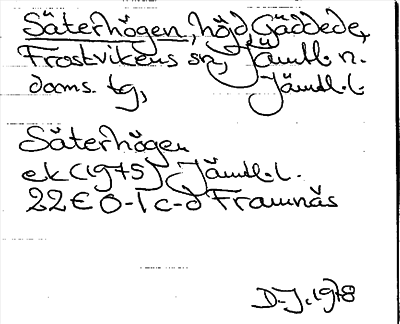 Säterhögen, höjd Gäddede,
Frostvikens sn, Jämtl. n.
doms. tg, Jämtl. l.
Säterhögen
ek (1975) Jämtl. l.
22E 0-1 c-d Framnäs
D-J. 1978